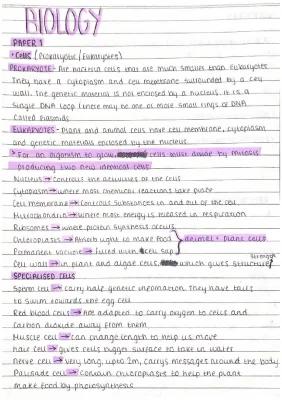 BIOLOGY
PAPER 1
• Cells (Prokaryotic/Eukaryotes)
PROKARYOTE - Are bacteria cells that are much smaller than eukaryotes
They have a cytoplasm and cell membrane surrounded by a cell
wall. The genetic material is not enclosed by a nucleus. It is a
single DNA loop (there may be one or more small rings of DNA
called plasmids
EUKARYOTES - Plant and animal cells have cell membrane, cytoplasm
and genetic materials enclosed by the nucleus
> For an organism to grow, cells must divide by mitosis
producing two new identical cells
Nucleus → controls the activities of the cells
Cytoplasm → where most chemical reactions take place
Cell membrane → controls substances in and out of the cell
Mitochondria → where most energy is released in respiration
Ribosomes → where protein synthesis occurs
Chloroplasts → Absorb light to make food } animal + plant cells
Permanent vacuole → filled with cell sap
Cell wall → in plant and algae cells, which gives structure strength
SPECIALISED CELLS
Sperm cell → carry half genetic information. They have tails
to swim towards the egg cell
Red blood cells → adapted to carry oxygen to cells and
carbon dioxide away from them
Muscle cell → can change length to help us move
hair cell → gives cells bigger surface to take in water
Nerve cell → very long, upto 2m, carrys messages around the body
Palisade cell → contain chloroplasts to help the plant
make food by photosynthesis